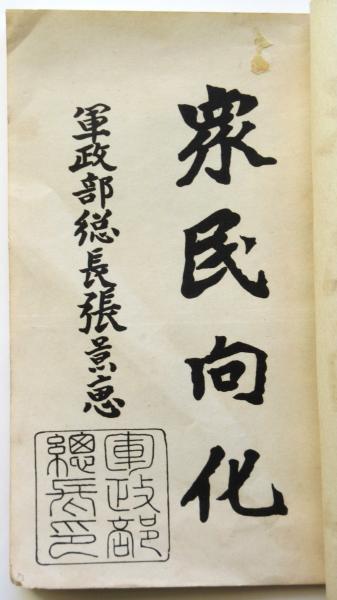 衆民向化
軍政部總長張景惠
軍政部
總長印